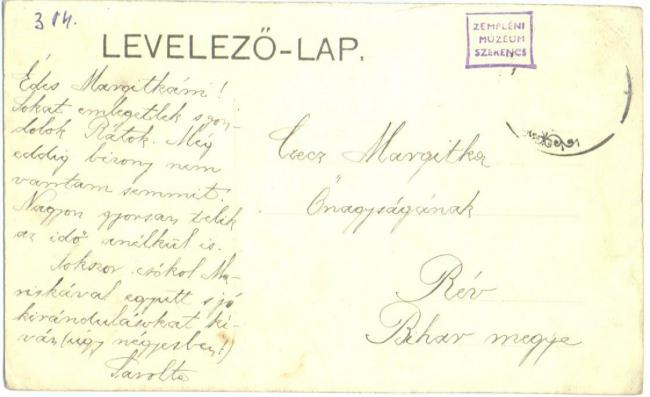 3 M.
LEVELEZŐ-LAP.
ZEMPLÉNI
MÚZEUM
SZERENCS
Édes Margitkám!
Sokat emlegetlek s gon-
dolok Rátok. Még
eddig bizony nem
varrtam semmit.
Nagyon gyorsan telik
az idő anélkül is.
Sokszor csókol Ma-
riskával együtt s jó
kirándulásokat kí-
ván (úgy négyesben!)
Sarolta
Czecz Margitka
Őnagyságának
Rév
Bihar megye